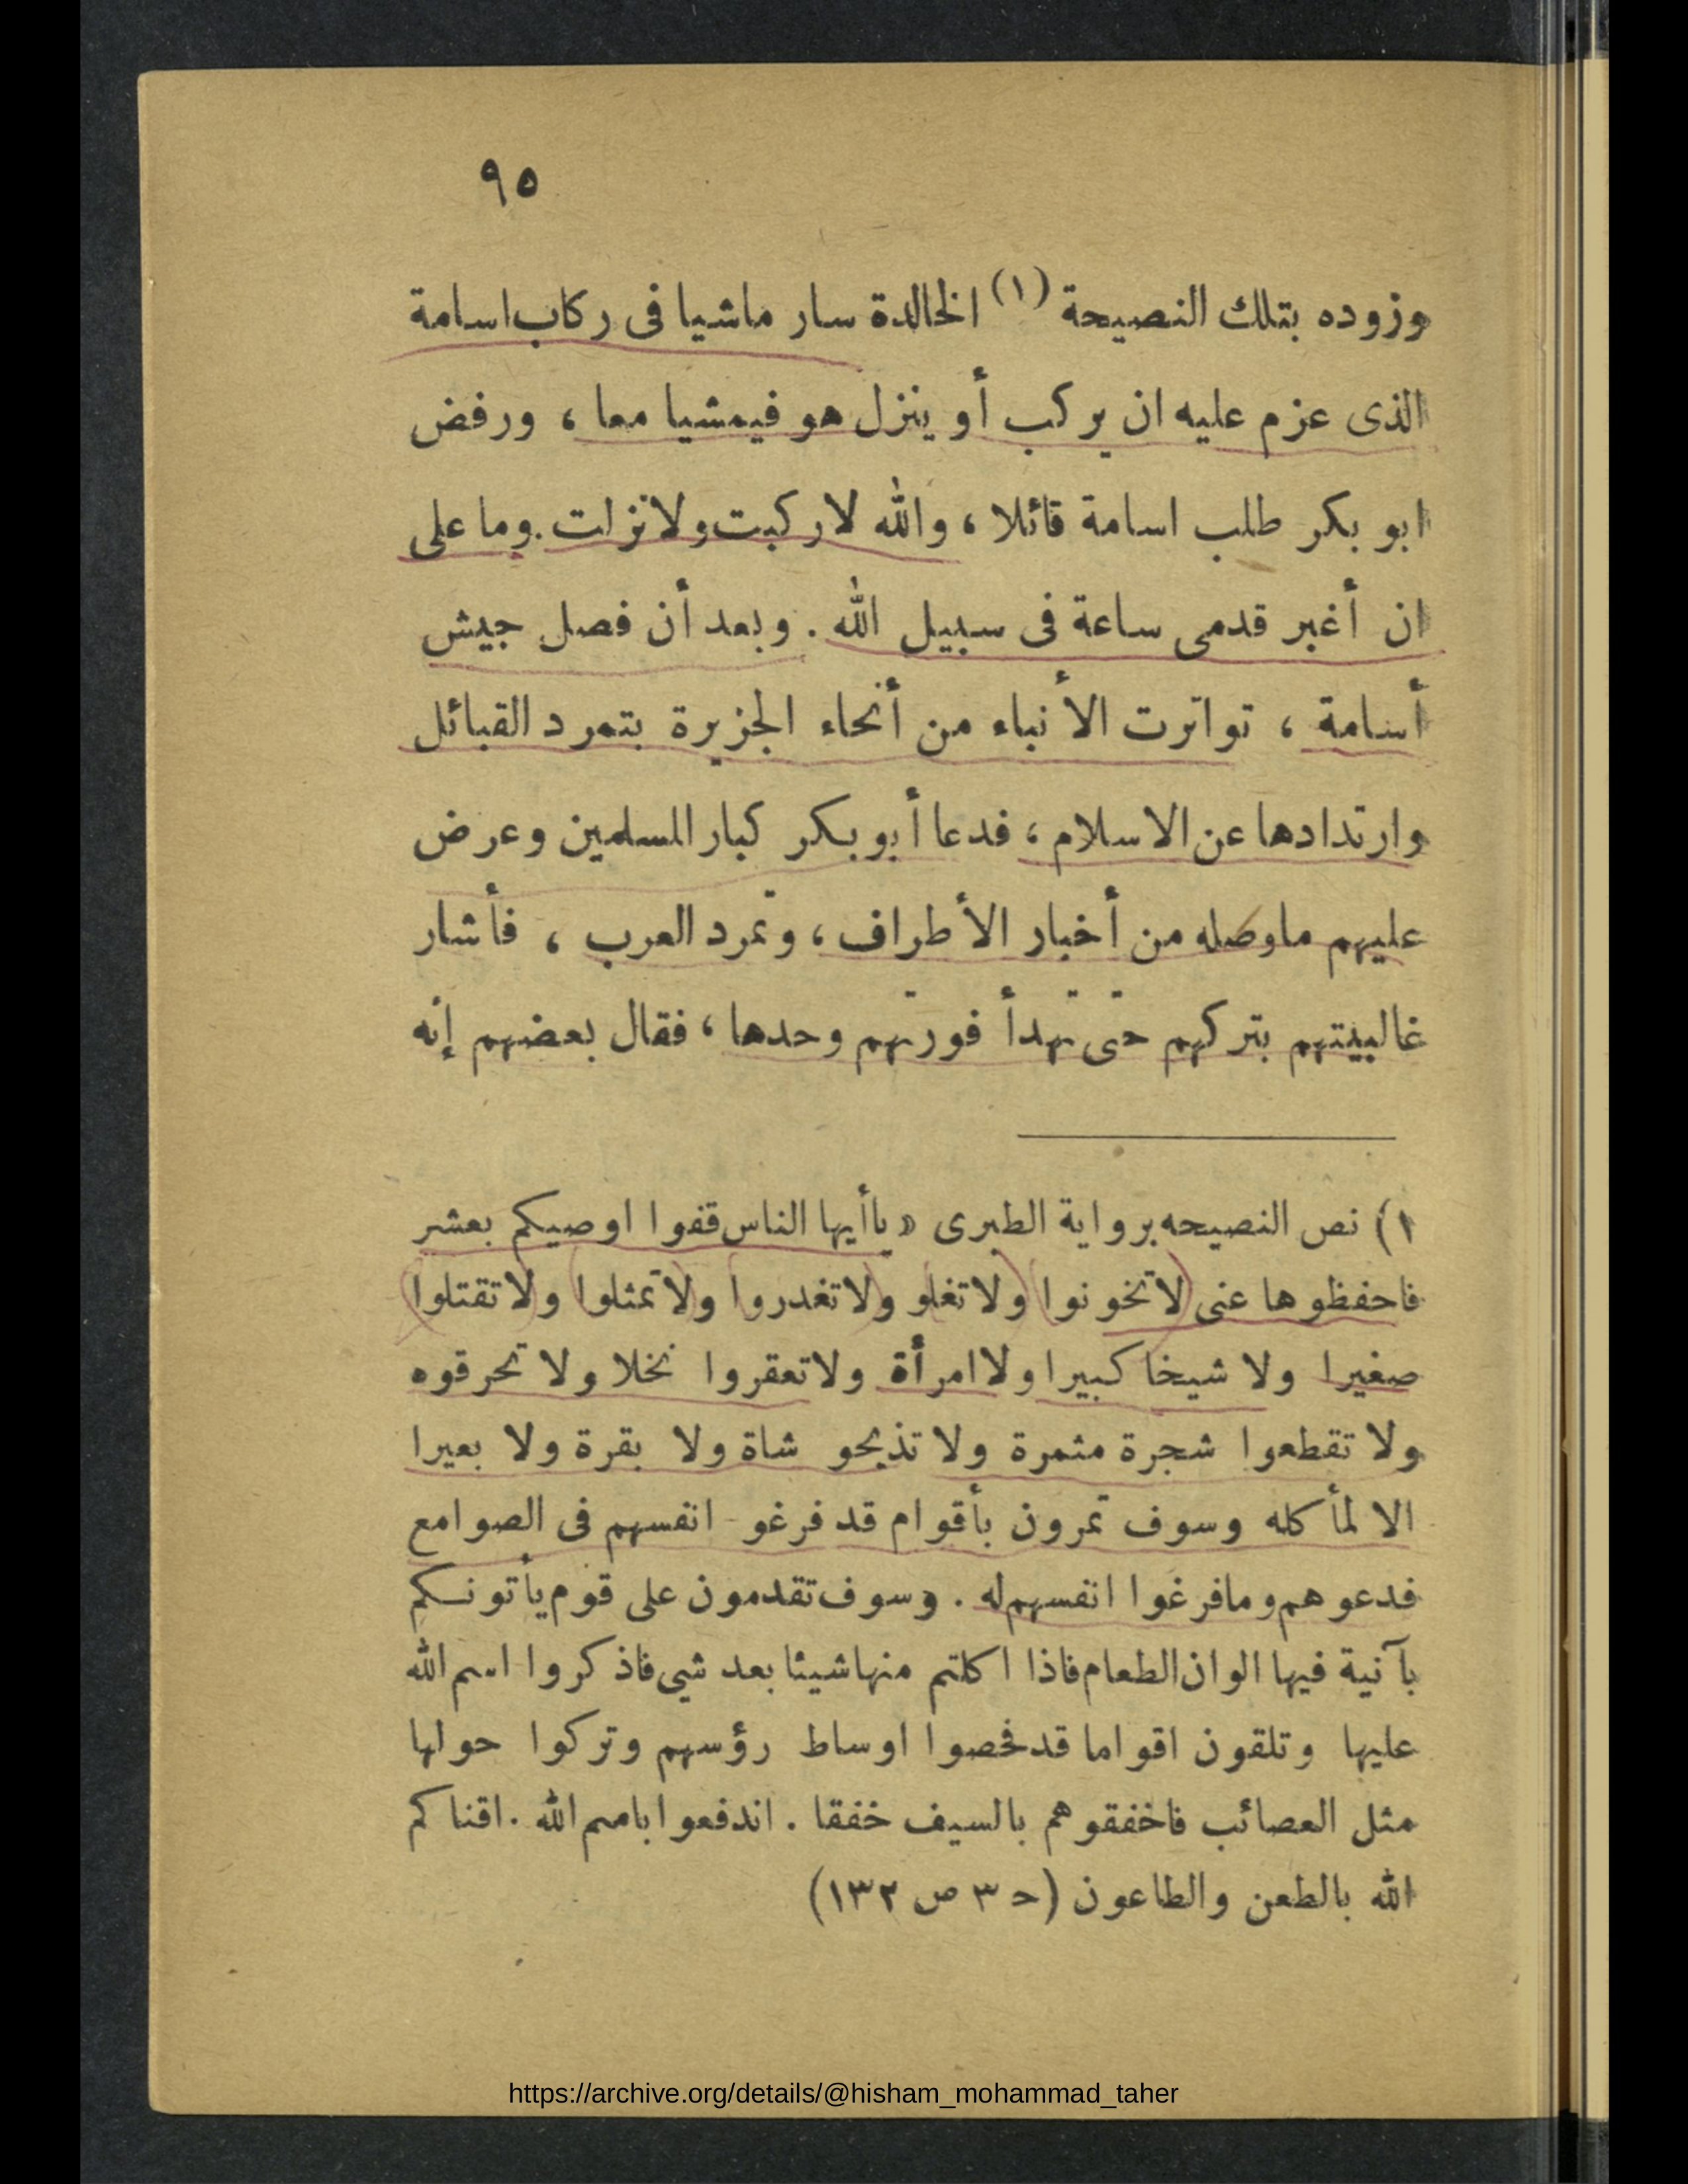 ٩٥
وزوده بتلك النصيحة (١) الخالدة سار ماشيا فى ركاب اسامة
الذى عزم عليه ان يركب أو ينزل هو فيمشيا معا ، ورفض
ابو بكر طلب اسامة قائلا ، والله لاركبت ولا نزلت . وما على
ان أغبر قدمى ساعة فى سبيل الله . وبعد أن فصل جيش
أسامة ، تواترت الأنباء من أنحاء الجزيرة بتمرد القبائل
وارتدادها عن الاسلام ، فدعا أبو بكر كبار المسلمين وعرض
عليهم ماوصله من أخبار الأطراف ، وتمرد العرب ، فأشار
غالبيتهم بتركهم حتى تهدأ فورتهم وحدها ، فقال بعضهم إنه
١) نص النصيحه برواية الطبرى « ياأيها الناس قفوا اوصيكم بعشر
فاحفظوها عنى لاتخونوا ولا تغلو ولا تغدروا ولا تمثلوا ولا تقتلوا
صغيرا ولا شيخا كبيرا ولا امرأة ولا تعقروا نخلا ولا تحرقوه
ولا تقطعوا شجرة مثمرة ولا تذبحو شاة ولا بقرة ولا بعيرا
الا لمأكله وسوف تمرون بأقوام قد فرغو انفسهم فى الصوامع
فدعوهم وما فرغوا انفسهم له . وسوف تقدمون على قوم يأتونكم
بآنية فيها الوان الطعام فاذا اكلتم منها شيئا بعد شيى فاذكروا اسم الله
عليها وتلقون اقواما قد فحصوا اوساط رؤسهم وتركوا حولها
مثل العصائب فاخفقوهم بالسيف خفقا . اندفعوا باسم الله . اقناكم
الله بالطعن والطاعون (حـ ٣ ص ١٣٢)
https://archive.org/details/@hisham_mohammad_taher